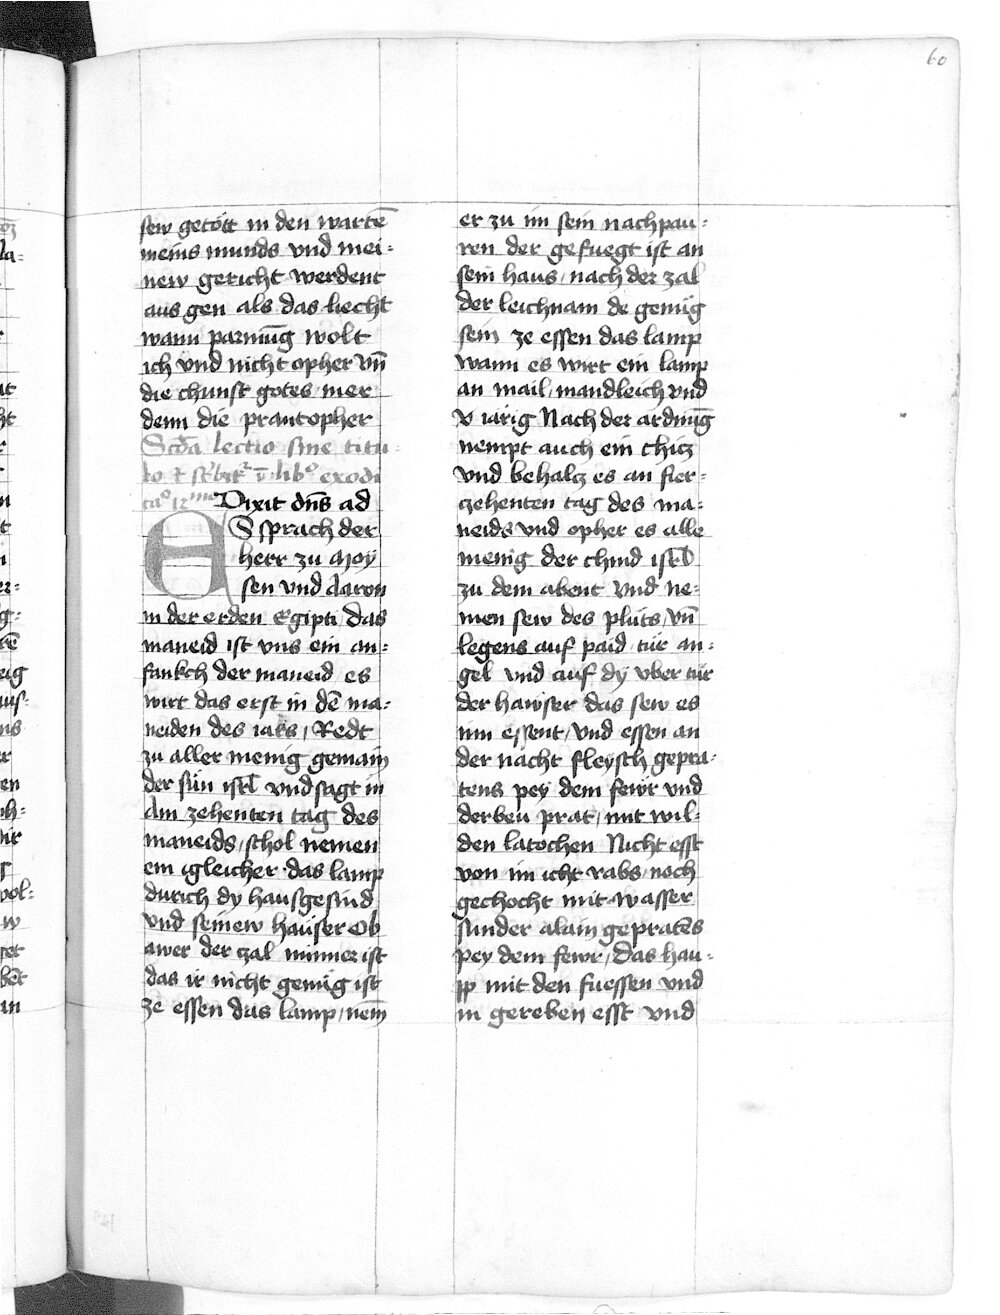 60
sew getött in den wartē
meins munds vnd mei-
new gericht werdent
aus gen als das liecht
wann parmūg wolt
ich vnd nicht opher vn̄
die chunst gotes mer
denn die prantopher
Scda lectio sine titu-
lo exodi
Dixit dn̄s ad
ES sprach der
herr zu Moy
sen vnd Aaron
in der erden Egipti das
maneid ist vns ein an-
fankch der maneid es
wirt das erst in dē ma-
neiden des iars, Redt
zu aller menig gemain
der sün isrl vnd sagt in
Am zehenten tag des
maneids, schol nemen
ein igleicher das lamp
durich dy hausgesind
vnd seinew häuser Ob
awer der zal minner ist
das ir nicht genüg ist
ze essen das lamp, nem̄
er zu im sein nachpau-
ren der gefuegt ist an
sein haus, nach der zal
der leichnam de genüg
sein ze essen das lamp
wann es wirt ein lamp
an mail, mandleich vnd
v iärig Nach der ardnūg
nempt auch ein chicz
vnd behalcz es an fier-
czehenten tag des ma-
neids vnd opher es alle
menig der chind isrl
zu dem abent vnd ne-
men sew des pluts, vn̄
legens auf paid tür an-
gel vnd auf dy vber tür
der hawser das sew es
inn essent, vnd essen an
der nacht fleysch gepra-
tens pey dem fewr vnd
derbeu prat, mit wil-
den latochen Nicht esst
von im icht rabs, noch
gechocht mit wasser
sunder alain gepratēs
pey dem fewr, das hau-
pp mit den fuessen vnd
in gereben esst vnd